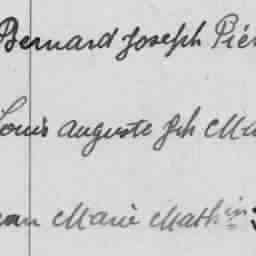 Bernard Joseph Piér
Louis Auguste Jph Ma
ean Marie Mathin